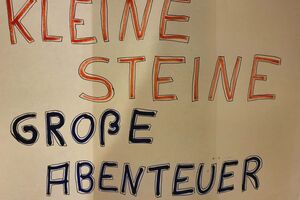 KLEINE
STEINE
GROßE
ABENTEUER